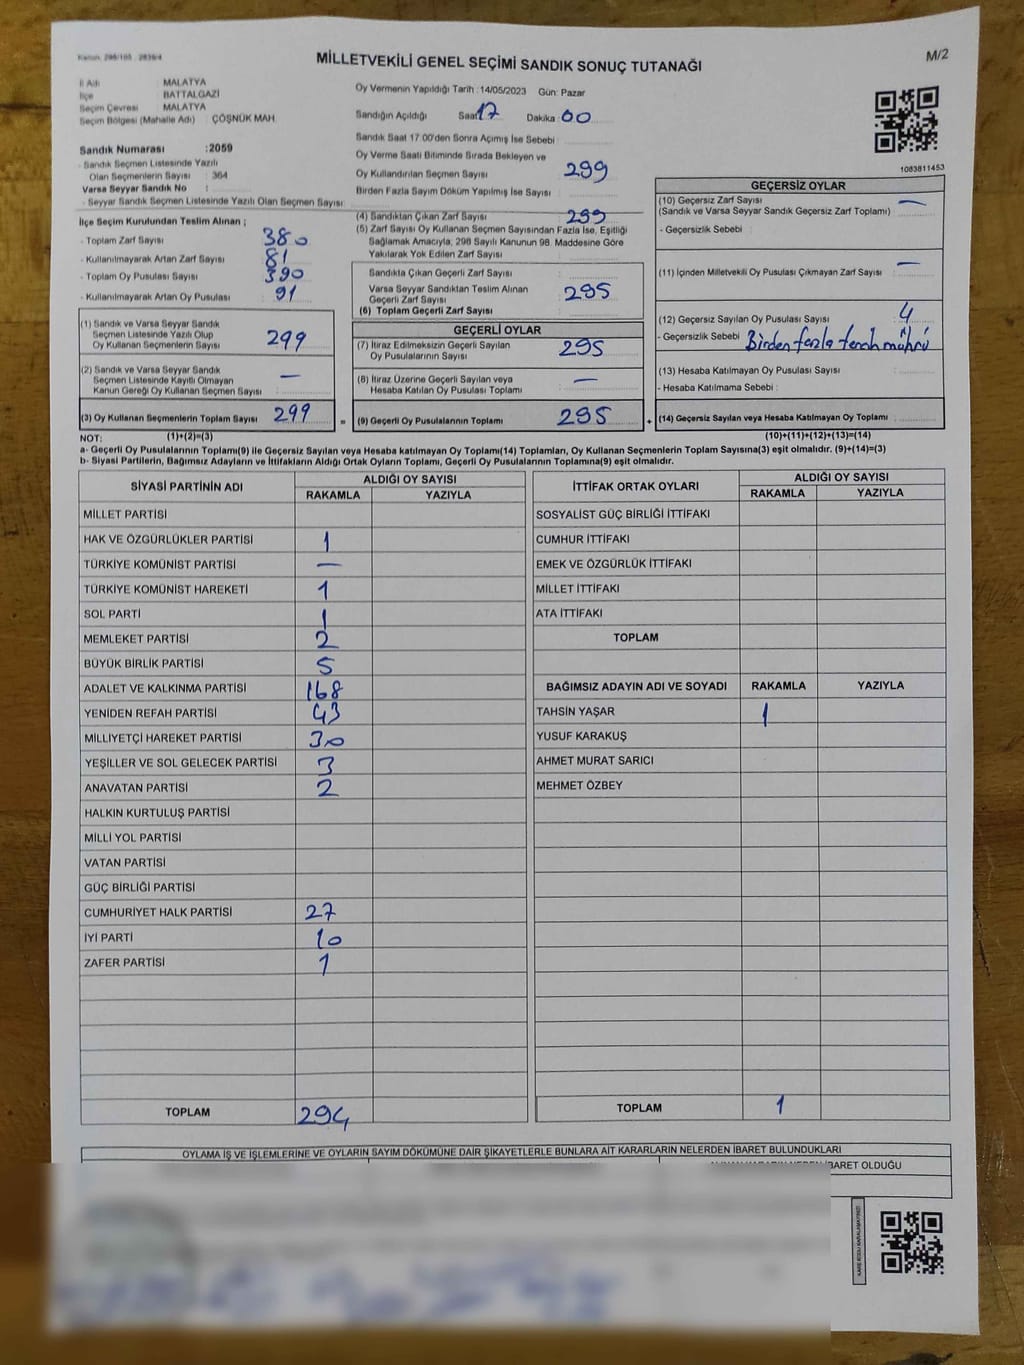 Kanun, 298/105 2839/4
M/2
MİLLETVEKİLİ GENEL SEÇİMİ SANDIK SONUÇ TUTANAĞI
İl Adı : MALATYA
İlçe : BATTALGAZİ
Seçim Çevresi : MALATYA
Seçim Bölgesi (Mahalle Adı) : ÇÖŞNÜK MAH.
Sandık Numarası :2059
- Sandık Seçmen Listesinde Yazılı
Olan Seçmenlerin Sayısı : 364
Varsa Seyyar Sandık No :
- Seyyar Sandık Seçmen Listesinde Yazılı Olan Seçmen Sayısı:
Oy Vermenin Yapıldığı Tarih :14/05/2023 Gün: Pazar
Sandığın Açıldığı Saat 17 Dakika 00
Sandık Saat 17.00'den Sonra Açımış İse Sebebi :
Oy Verme Saati Bitiminde Sırada Bekleyen ve
Oy Kullandırılan Seçmen Sayısı : 299
Birden Fazla Sayım Döküm Yapılmış İse Sayısı :
1083811453
İlçe Seçim Kurulundan Teslim Alınan ;
- Toplam Zarf Sayısı : 380
- Kullanılmayarak Artan Zarf Sayısı : 81
- Toplam Oy Pusulası Sayısı : 390
- Kullanılmayarak Artan Oy Pusulası : 91
(1) Sandık ve Varsa Seyyar Sandık
Seçmen Listesinde Yazılı Olup
Oy Kullanan Seçmenlerin Sayısı : 299
(2) Sandık ve Varsa Seyyar Sandık
Seçmen Listesinde Kayıtlı Olmayan
Kanun Gereği Oy Kullanan Seçmen Sayısı : —
(3) Oy Kullanan Seçmenlerin Toplam Sayısı : 299
(1)+(2)=(3)
(4) Sandıktan Çıkan Zarf Sayısı : 299
(5) Zarf Sayısı Oy Kullanan Seçmen Sayısından Fazla İse, Eşitliği
Sağlamak Amacıyla, 298 Sayılı Kanunun 98. Maddesine Göre
Yakılarak Yok Edilen Zarf Sayısı :
Sandıkta Çıkan Geçerli Zarf Sayısı :
Varsa Seyyar Sandıktan Teslim Alınan
Geçerli Zarf Sayısı : 295
(6) Toplam Geçerli Zarf Sayısı :
GEÇERLİ OYLAR
(7) İtiraz Edilmeksizin Geçerli Sayılan
Oy Pusulalarının Sayısı : 295
(8) İtiraz Üzerine Geçerli Sayılan veya
Hesaba Katılan Oy Pusulası Toplamı : —
= (9) Geçerli Oy Pusulalarının Toplamı : 295
GEÇERSİZ OYLAR
(10) Geçersiz Zarf Sayısı : —
(Sandık ve Varsa Seyyar Sandık Geçersiz Zarf Toplamı)
- Geçersizlik Sebebi :
(11) İçinden Milletvekili Oy Pusulası Çıkmayan Zarf Sayısı : —
(12) Geçersiz Sayılan Oy Pusulası Sayısı : 4
- Geçersizlik Sebebi : Birden fazla tercih mührü
(13) Hesaba Katılmayan Oy Pusulası Sayısı :
- Hesaba Katılmama Sebebi :
+ (14) Geçersiz Sayılan veya Hesaba Katılmayan Oy Toplamı :
(10)+(11)+(12)+(13)=(14)
NOT:
a- Geçerli Oy Pusulalarının Toplamı(9) ile Geçersiz Sayılan veya Hesaba katılmayan Oy Toplamı(14) Toplamları, Oy Kullanan Seçmenlerin Toplam Sayısına(3) eşit olmalıdır. (9)+(14)=(3)
b- Siyasi Partilerin, Bağımsız Adayların ve İttifakların Aldığı Ortak Oyların Toplamı, Geçerli Oy Pusulalarının Toplamına(9) eşit olmalıdır.
SİYASİ PARTİNİN ADI ALDIĞI OY SAYISI
RAKAMLA YAZIYLA
MİLLET PARTİSİ
HAK VE ÖZGÜRLÜKLER PARTİSİ 1
TÜRKİYE KOMÜNİST PARTİSİ —
TÜRKİYE KOMÜNİST HAREKETİ 1
SOL PARTİ 1
MEMLEKET PARTİSİ 2
BÜYÜK BİRLİK PARTİSİ 5
ADALET VE KALKINMA PARTİSİ 168
YENİDEN REFAH PARTİSİ 43
MİLLİYETÇİ HAREKET PARTİSİ 30
YEŞİLLER VE SOL GELECEK PARTİSİ 3
ANAVATAN PARTİSİ 2
HALKIN KURTULUŞ PARTİSİ
MİLLİ YOL PARTİSİ
VATAN PARTİSİ
GÜÇ BİRLİĞİ PARTİSİ
CUMHURİYET HALK PARTİSİ 27
İYİ PARTİ 10
ZAFER PARTİSİ 1
TOPLAM 294
İTTİFAK ORTAK OYLARI ALDIĞI OY SAYISI
RAKAMLA YAZIYLA
SOSYALİST GÜÇ BİRLİĞİ İTTİFAKI
CUMHUR İTTİFAKI
EMEK VE ÖZGÜRLÜK İTTİFAKI
MİLLET İTTİFAKI
ATA İTTİFAKI
TOPLAM
BAĞIMSIZ ADAYIN ADI VE SOYADI RAKAMLA YAZIYLA
TAHSİN YAŞAR 1
YUSUF KARAKUŞ
AHMET MURAT SARICI
MEHMET ÖZBEY
TOPLAM 1
OYLAMA İŞ VE İŞLEMLERİNE VE OYLARIN SAYIM DÖKÜMÜNE DAİR ŞİKAYETLERLE BUNLARA AİT KARARLARIN NELERDEN İBARET BULUNDUKLARI
İBARET OLDUĞU